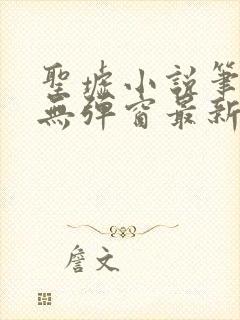 聖墟小說筆
無彈窗最新
詹文